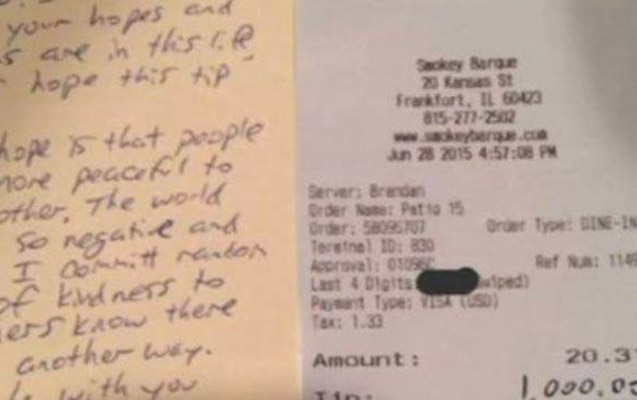 your hopes and
s are in this life
hope this tip
hope is that people
more peaceful to
other. The world
so negative and
I committ random
of kindness to
ers know there
another way.
with you
Smokey Barque
20 Kansas St
Frankfort, IL 60423
815-277-2502
www.smokeybarque.com
Jun 28 2015 4:57:08 PM
Server: Brendan
Order Name: Patio 15
Order: 58095707 Order Type: DINE-IN
Terminal ID: 830
Approval: Ref Num: 1149
Last 4 Digits wiped)
Payment Type: VISA (USD)
Tax: 1.33
Amount: 20.3
Tip: 1,000.00